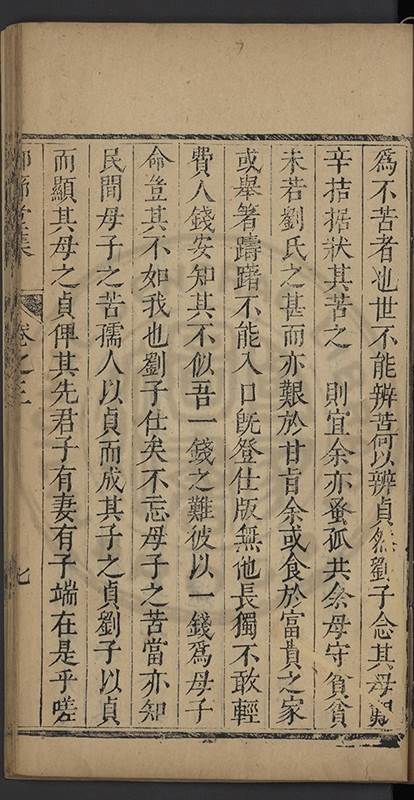 為不苦者也世不能辨苦何以辨貞然劉子念其母
辛拮据狀其苦之 則宜余亦蚤孤共余母守貧貧
未若劉氏之甚而亦艱於甘旨余或食於富貴之家
或舉箸躊躇不能入口既登仕版無他長獨不敢輕
費人錢安知其不似吾一錢之難彼以一錢為母子
命豈其不如我也劉子仕矣不忘母子之苦當亦知
民間母子之苦孺人以貞而成其子之貞劉子以貞
而顯其母之貞俾其先君子有妻有子端在是乎嗟
堂集 卷之三 七